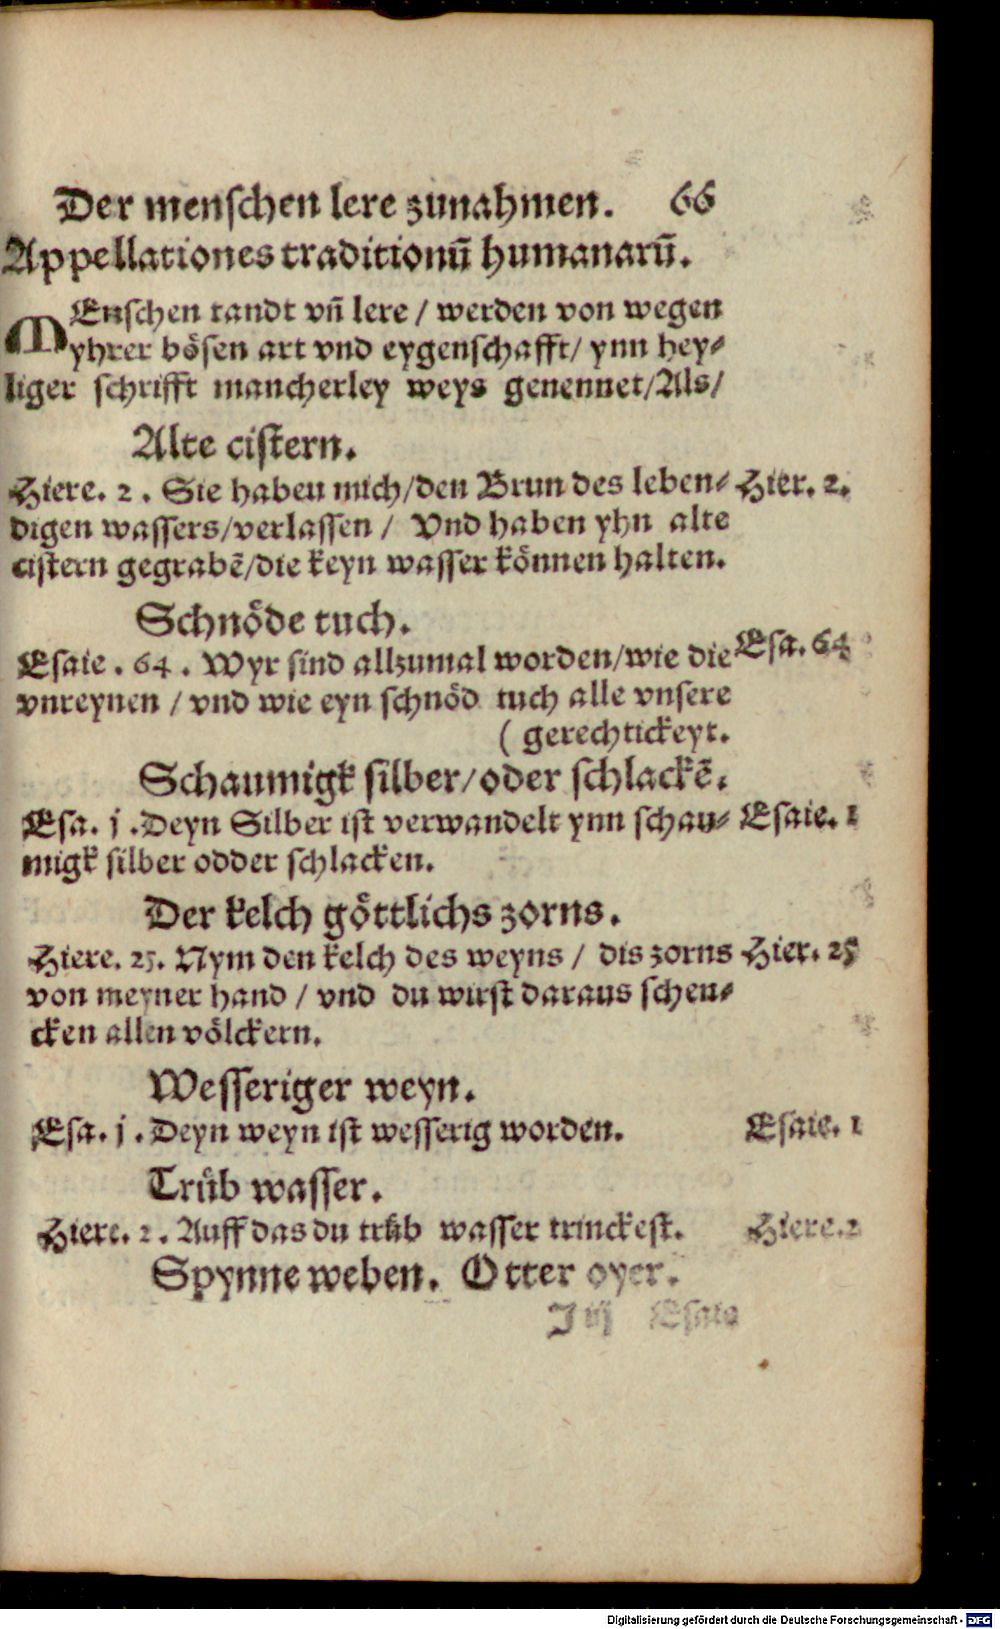 Der menschen lere zunahmen. 66
Appellationes traditionũ humanarũ.
MEnschen tandt vñ lere / werden von wegen
yhrer bösen art vnd eygenschafft/ ynn hey⸗
liger schrifft mancherley weys genennet/Als/
Alte cistern.
Hiere. 2 . Sie haben mich/den Brun des leben⸗ Hier. 2.
digen wassers/verlassen / Vnd haben yhn alte
cistern gegrabẽ/die keyn wasser können halten.
Schnöde tuch.
Esaie . 64 . Wyr sind allzumal worden/wie die Esa. 64
vnreynen / vnd wie eyn schnöd tuch alle vnsere
( gerechtickeyt.
Schaumigk silber/oder schlackẽ.
Esa. j .Deyn Silber ist verwandelt ynn schau⸗ Esaie. 1
migk silber odder schlacken.
Der kelch göttlichs zorns.
Hiere. 25. Nym den kelch des weyns / dis zorns Hier. 25
von meyner hand / vnd du wirst daraus schen⸗
cken allen völckern.
Wesseriger weyn.
Esa. j . Deyn weyn ist wesserig worden. Esaie. 1
Trüb wasser.
Hiere. 2 . Auff das du trüb wasser trinckest. Hiere.2
Spynne weben. Otter oyer.
J iij Esaie
Digitalisierung gefördert durch die Deutsche Forschungsgemeinschaft - DFG